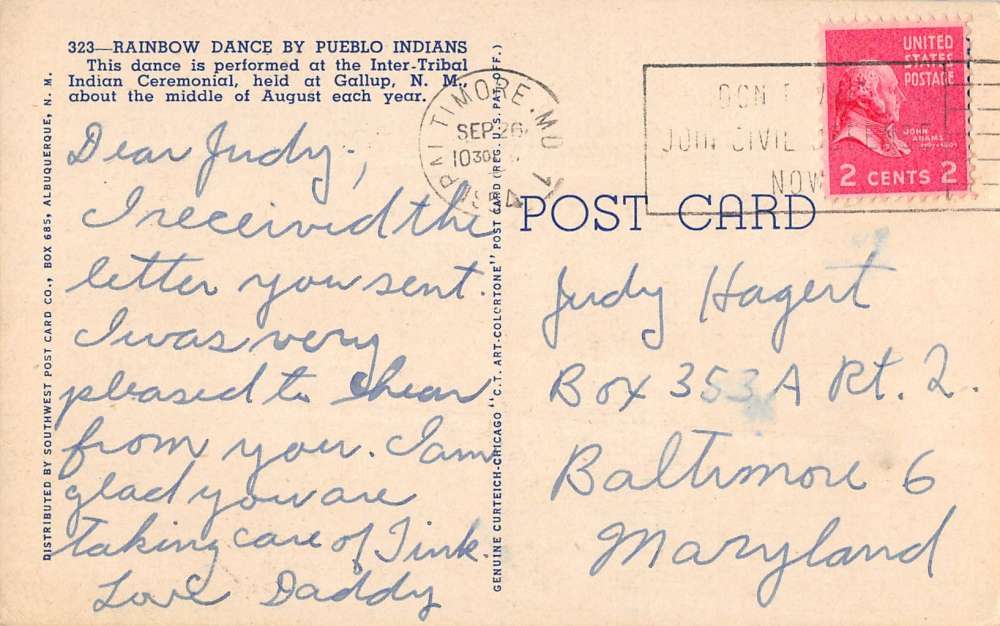 323—RAINBOW DANCE BY PUEBLO INDIANS
This dance is performed at the Inter-Tribal
Indian Ceremonial, held at Gallup, N. M.,
about the middle of August each year.
Dear Judy,
I received the
letter you sent.
I was very
pleased to hear
from you. I am
glad you are
taking care of Tink.
Love Daddy
DISTRIBUTED BY SOUTHWEST POST CARD CO., BOX 685, ALBUQUERQUE, N. M.
GENUINE CURTEICH-CHICAGO "C.T. ART-COLORTONE" POST CARD (REG. U.S. PAT. OFF.)
BALTIMORE, MD
SEP 26
1030
JOIN CIVIL
NOW
UNITED
STATES
POSTAGE
JOHN
ADAMS
2 CENTS 2
POST CARD
Judy Hagert
Box 353 A Rt. 2.
Baltimore 6
Maryland